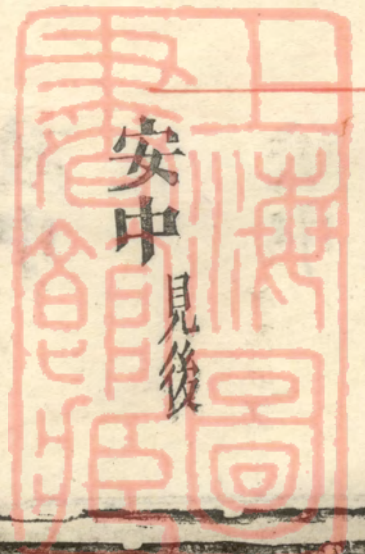 安中 見後
上海圖
書館藏